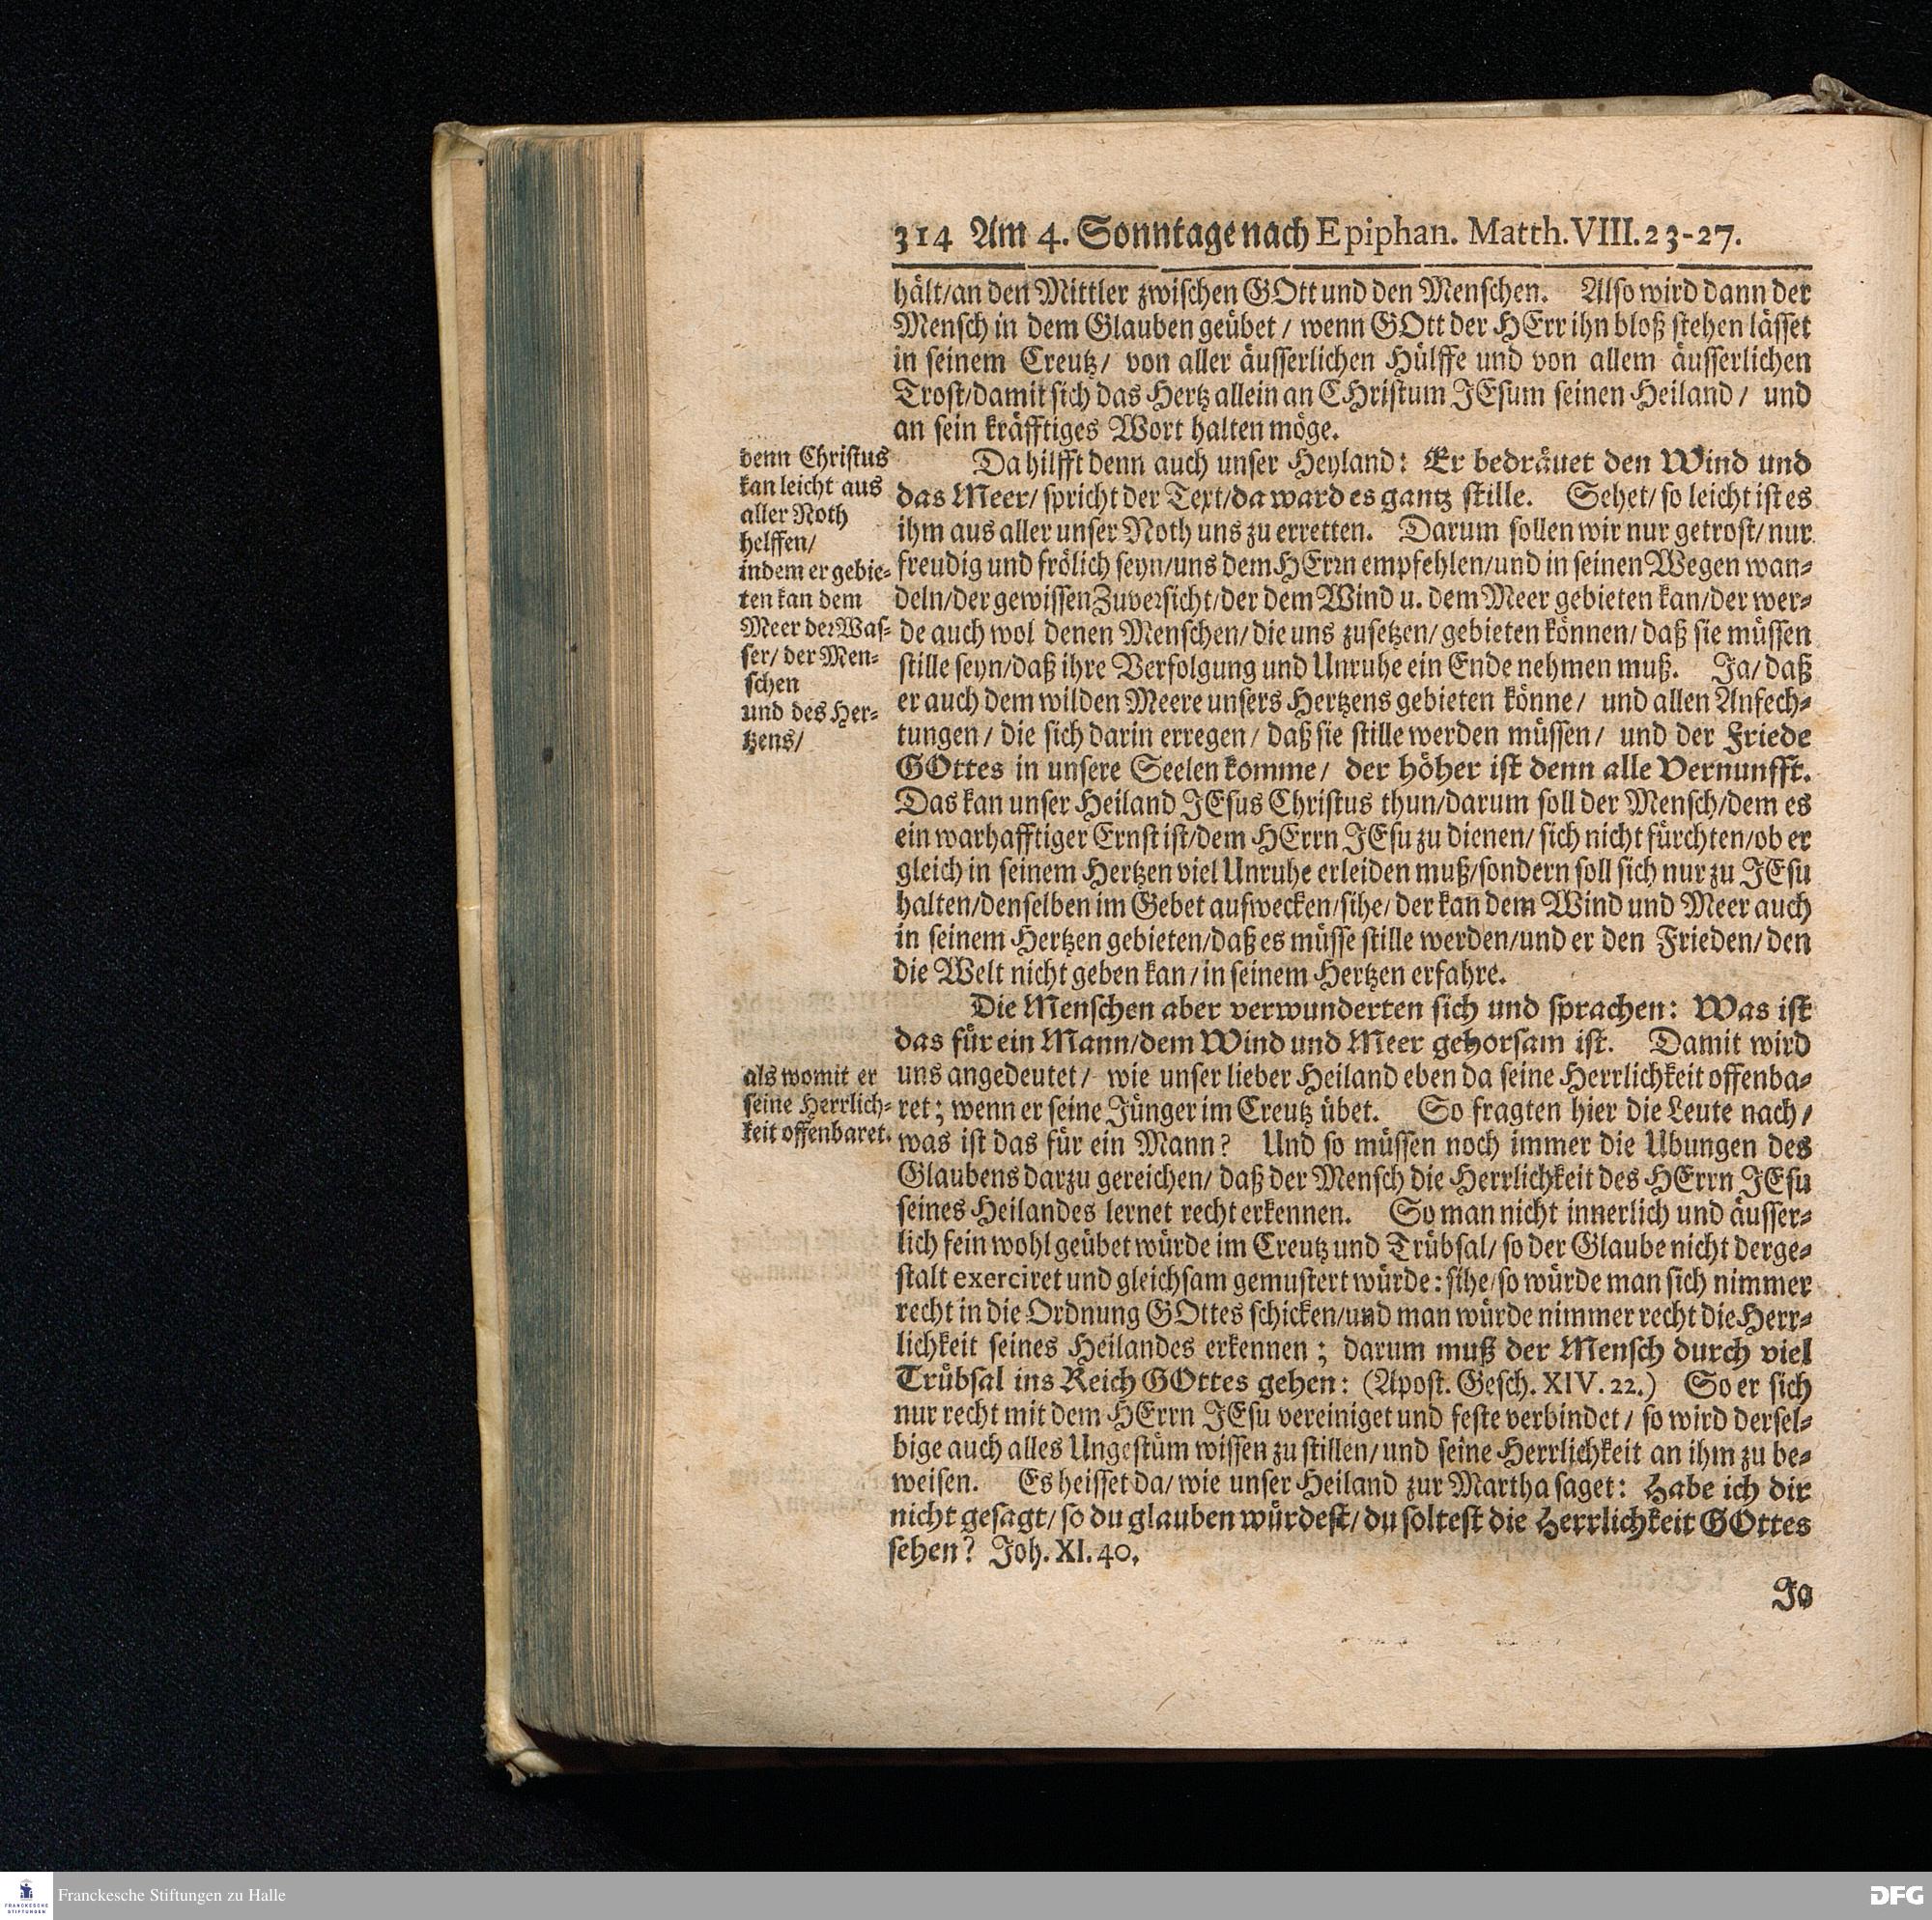 314 Am 4. Sonntage nach Epiphan. Matth. VIII. 23-27.
hält/an den Mittler zwischen GOtt und den Menschen. Also wird dann der
Mensch in dem Glauben geübet / wenn GOtt der HErr ihn bloß stehen lässet
in seinem Creutz/ von aller äusserlichen Hülffe und von allem äusserlichen
Trost/damit sich das Hertz allein an CHristum JEsum seinen Heiland / und
an sein kräfftiges Wort halten möge.
denn Christus
kan leicht aus
aller Noth
helffen/
indem er gebie-
ten kan dem
Meer der Was-
ser/ der Men-
schen
und des Her-
tzens/
Da hilfft denn auch unser Heyland: Er bedräuet den Wind und
das Meer/ spricht der Text/da ward es gantz stille. Sehet/ so leicht ist es
ihm aus aller unser Noth uns zu erretten. Darum sollen wir nur getrost/ nur
freudig und frölich seyn/uns dem HErrn empfehlen/und in seinen Wegen wan-
deln/der gewissen Zuversicht/der dem Wind u. dem Meer gebieten kan/der wer-
de auch wol denen Menschen/die uns zusetzen/ gebieten können/ daß sie müssen
stille seyn/daß ihre Verfolgung und Unruhe ein Ende nehmen muß. Ja/ daß
er auch dem wilden Meere unsers Hertzens gebieten könne/ und allen Anfech-
tungen / die sich darin erregen / daß sie stille werden müssen/ und der Friede
GOttes in unsere Seelen komme/ der höher ist denn alle Vernunfft.
Das kan unser Heiland JEsus Christus thun/darum soll der Mensch/dem es
ein warhafftiger Ernst ist/dem HErrn JEsu zu dienen/ sich nicht fürchten/ob er
gleich in seinem Hertzen viel Unruhe erleiden muß/sondern soll sich nur zu JEsu
halten/denselben im Gebet aufwecken/sihe/ der kan dem Wind und Meer auch
in seinem Hertzen gebieten/daß es müsse stille werden/und er den Frieden/ den
die Welt nicht geben kan/in seinem Hertzen erfahre.
Die Menschen aber verwunderten sich und sprachen: Was ist
das für ein Mann/dem Wind und Meer gehorsam ist. Damit wird
als womit er
seine Herrlich-
keit offenbaret.
uns angedeutet/ wie unser lieber Heiland eben da seine Herrlichkeit offenba-
ret; wenn er seine Jünger im Creutz übet. So fragten hier die Leute nach/
was ist das für ein Mann? Und so müssen noch immer die Ubungen des
Glaubens darzu gereichen/ daß der Mensch die Herrlichkeit des HErrn JEsu
seines Heilandes lernet recht erkennen. So man nicht innerlich und äusser-
lich fein wohl geübet würde im Creutz und Trübsal/ so der Glaube nicht derge-
stalt exerciret und gleichsam gemustert würde: sihe/so würde man sich nimmer
recht in die Ordnung GOttes schicken/und man würde nimmer recht die Herr-
lichkeit seines Heilandes erkennen; darum muß der Mensch durch viel
Trübsal ins Reich GOttes gehen: (Apost. Gesch. XIV. 22.) So er sich
nur recht mit dem HErrn JEsu vereiniget und feste verbindet / so wird dersel-
bige auch alles Ungestüm wissen zu stillen/und seine Herrlichkeit an ihm zu be-
weisen. Es heisset da/ wie unser Heiland zur Martha saget: Habe ich dir
nicht gesagt/ so du glauben würdest/ du soltest die Herrlichkeit GOttes
sehen? Joh. XI. 40.
Ja
FRANCKESCHE
STIFTUNGEN
Franckesche Stiftungen zu Halle
DFG